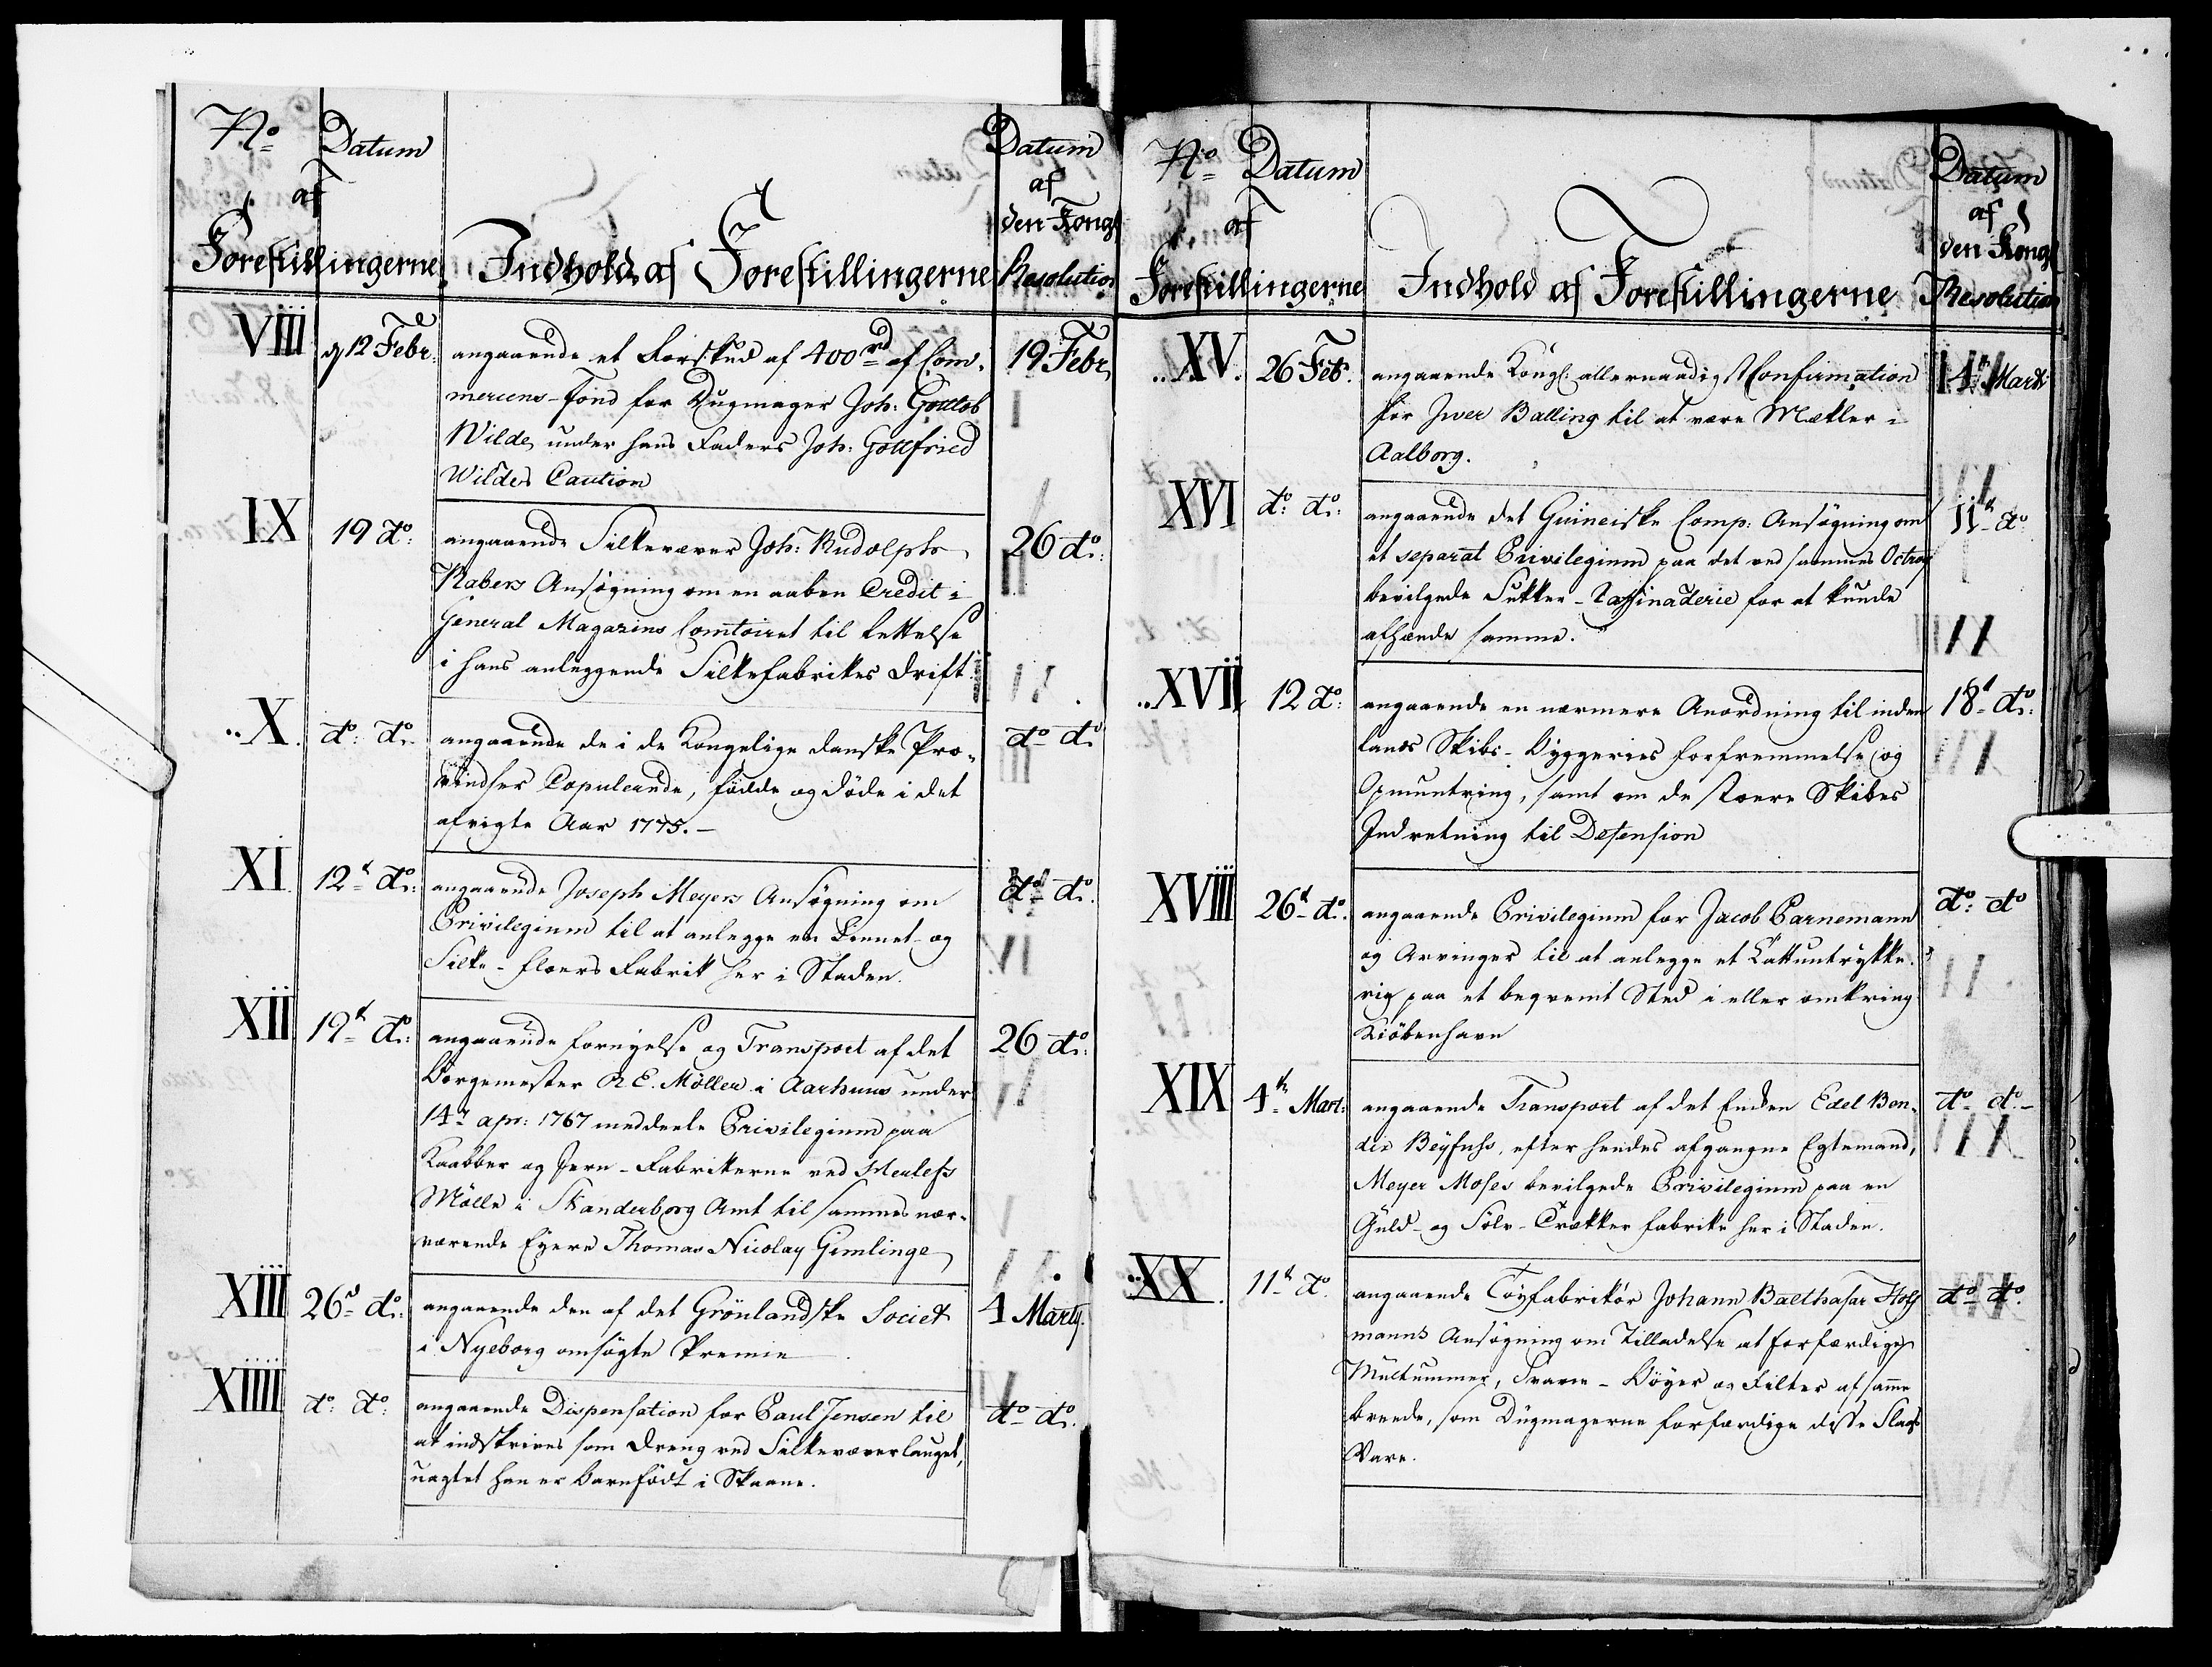 No Datum
af
Forestillingerne
Indhold af Forestillingerne
Datum
af
den Kongl
Resolution
VIII d 12 Febr: angaaende et Forskud af 400 rd af Com- 19 Febr
merciens-Fond for Dugmager Joh: Gottlob
Wilde, under hans Faders Joh: Gottfried
Wildes Caution
IX 19 do: angaaende Silkevæver Joh: Rudolph 26 do:
Rabers Ansøgning om en aaben Credit i
General Magazins Comtoiret til Lettelse
i hans anleggende Silkefabrikes Drift.
X. do: do: angaaende de i de Kongelige danske Pro- do do
vindser Copulerede, födde og döde i det
afvigte Aar 1775.-
XI 12t do: angaaende Joseph Meyers Ansøgning om do do.
Privilegium til at anlegge en Linnet- og
Silke-floers Fabrik her i Staden.
XII 19t do: angaaende Fornyelse og Transport af det 26 do:
Borgemester R E. Möller i Aarhuus under
14t apr: 1767 meddeelte Privilegium paa
Kaabber og Jern-Fabrikerne ved
Mölle i Skanderborg Amt til sammes nær-
værende Eyere Thomas Nicolay Gimlinge
XIII 26t do: angaaende den af det Grönlandske Societ 4 Martij.
i Nyeborg ansøgte Præmie
XIIII do: do: angaaende Dispensation for Paul Jensen til do do.
at indskrives som Dreng ved Silkevæverlauget,
uagtet han er barnfödt i Skaane.
No Datum
af
Forestillingerne
Indhold af Forestillingerne
Datum
af
den Kongl
Resolution
XV. 26 Feb: angaaende Kongl: allernaadigst Confirmation 4 Marti
for Jwer Balling til at være Mækler i
Aalborg.
XVI do: do: angaaende det Guineiske Comp: Ansøgning om 11t do
et separat Privilegium paa det ved sammes Octroy
bevilgede Sukker-Raffinaderie for at kunde
afhænde samme.
XVII 12 do: angaaende en nærmere Anordning til inden 18t do:
lands Skibs-Byggeries Forfremmelse og
Opmuntring, samt om de større Skibes
Indretning til Defension
XVIII 26t do: angaaende Privilegium for Jacob Parnemann do: do
og Arvinger til at anlegge et Cattuntrykke-
rie paa et beqvemt Sted i eller omkring
Kiöbenhavn
XIX 4t Mart: angaaende Transport af det Enken Edel Ben- do do-
dix Beyfuss, efter hendes afgangne Egtemand,
Meyer Moses bevilgede Privilegium paa en
Guld- og Sölv-Trækker Fabrike her i Staden.
XX. 11t do. angaaende Töyfabrikör Johann Balthasar Hoff do do.
manns Ansøgning om Tilladelse at forfærdige
Multummer, Svane-Böyer og Filter af samme
breede, som Dugmagerne forfærdige disse Slags
Vare.